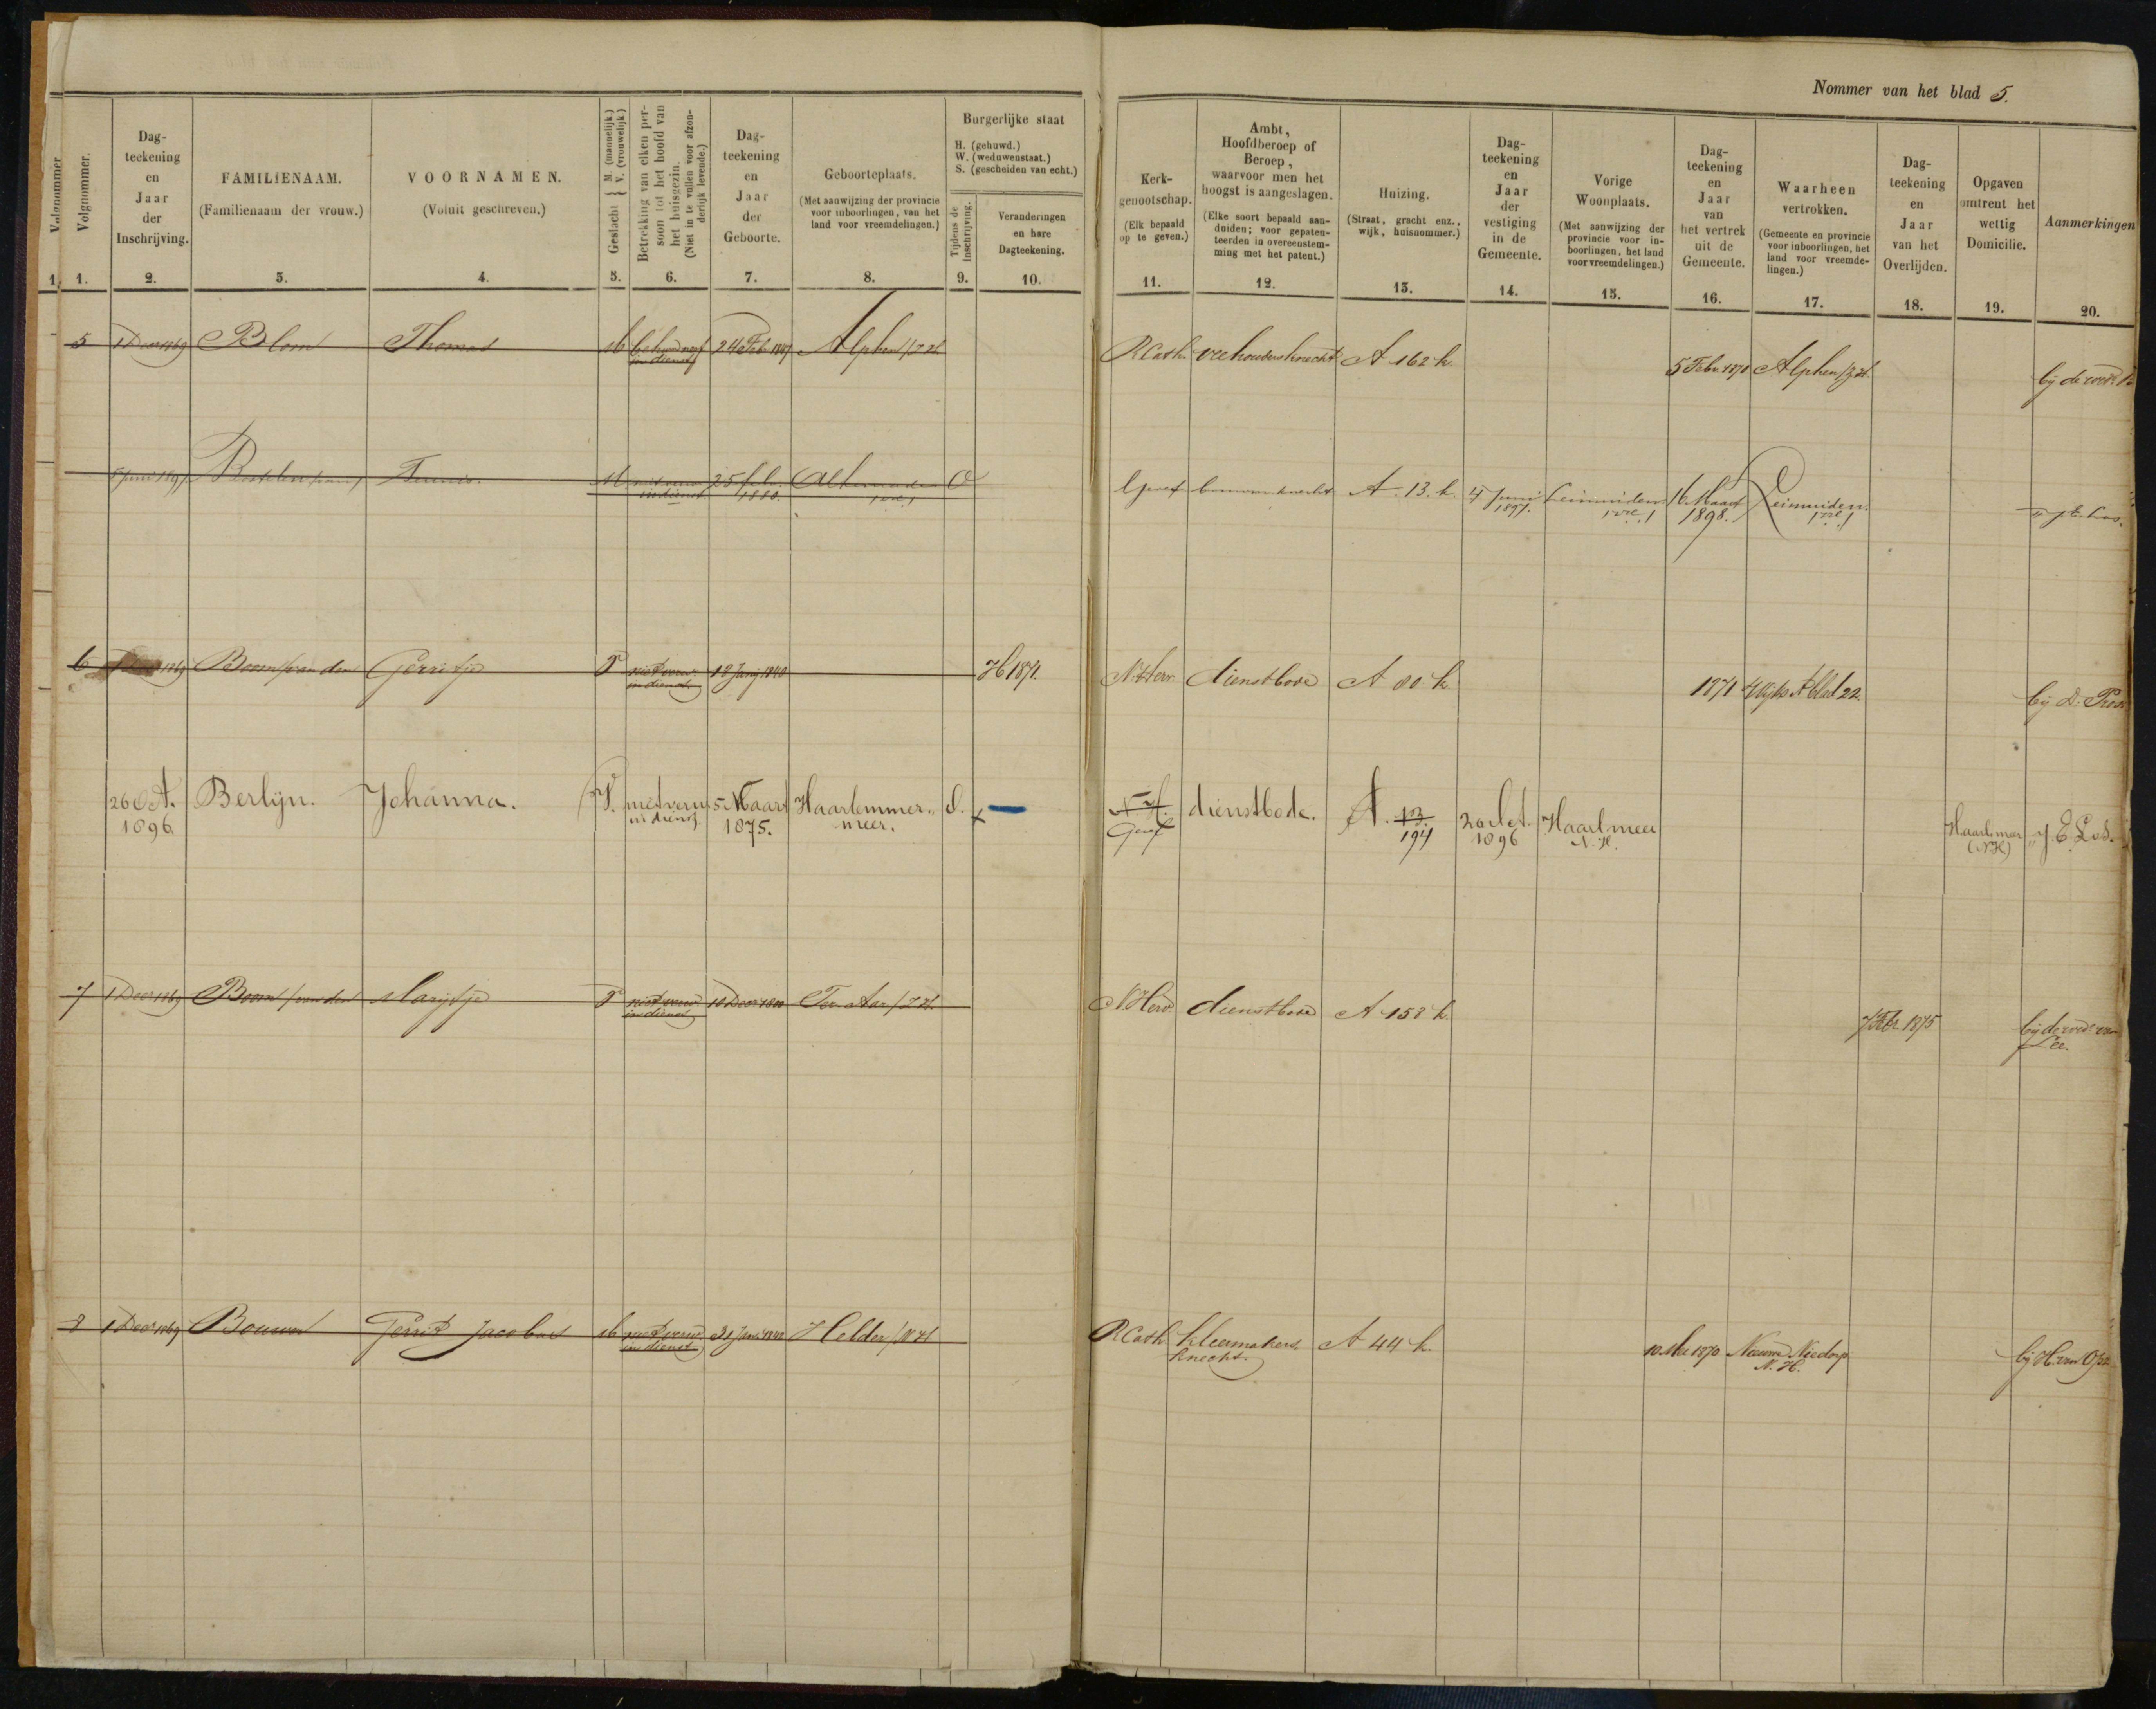 Nommer van het blad 5.
Volgnommer
1.
Volgnommer.
1.
Dag-
teekening
en
Jaar
der
Inschrijving.
2.
FAMILIENAAM.
(Familienaam der vrouw.)
3.
VOORNAMEN.
(Voluit geschreven.)
4.
Geslacht { M. (mannelijk.) V. (vrouwelijk.)
5.
Betrekking van elken per-
soon tot het hoofd van
het huisgezin.
(Niet in te vullen voor afzon-
derlijk levende.)
6.
Dag-
teekening
en
Jaar
der
Geboorte.
7.
Geboorteplaats.
(Met aanwijzing der provincie
voor inboorlingen, van het
land voor vreemdelingen.)
8.
Burgerlijke staat
H. (gehuwd.)
W. (weduwenstaat.)
S. (gescheiden van echt.)
Tijdens de
inschrijving.
9.
Veranderingen
en hare
Dagteekening.
10.
Kerk-
genootschap.
(Elk bepaald
op te geven.)
11.
Ambt,
Hoofdberoep of
Beroep,
waarvoor men het
hoogst is aangeslagen.
(Elke soort bepaald aan-
duiden; voor gepaten-
teerden in overeenstem-
ming met het patent.)
12.
Huizing.
(Straat, gracht enz.,
wijk, huisnommer.)
13.
Dag-
teekening
en
Jaar
der
vestiging
in de
Gemeente.
14.
Vorige
Woonplaats.
(Met aanwijzing der
provincie voor in-
boorlingen, het land
voor vreemdelingen.)
15.
Dag-
teekening
en
Jaar
van
het vertrek
uit de
Gemeente.
16.
Waarheen
vertrokken.
(Gemeente en provincie
voor inboorlingen, het
land voor vreemde-
lingen.)
17.
Dag-
teekening
en
Jaar
van het
Overlijden.
18.
Opgaven
omtrent het
wettig
Domicilie.
19.
Aanmerkingen
20.
5 1 Decr 1869 Blom Thomas M in dienst 24 Feb Alphen /ZH R Cath veehoudersknecht A 162 k. 5 Febr 1870 Alphen /ZH. bij de wede
Teunis. M in dienst 25 febr. 1880. Alkemade O Geref bouwmknecht A. 13. k. 4 Juni 1897. Leimuiden 16 Maart 1898. Leimuiden.
6 1869 Boom /van den Gerritje V niet verw. in dienst 12 Junij 1840 H 1871. N Herv. dienstbode A 80 k 1871 Wijk A blad 22. bij D. Pos
26 Oct. 1896 Berlijn. Johanna. V. niet verw. in dienst. 5 Maart 1875. Haarlemmer- meer. O. N. H. Geref dienstbode. A. 13. 194 26 Oct. 1896 Haarlmeer N. H. Haarlmeer (NH) J E Los.
7 1 Decr 1869 Boom /van den Marijtje V niet verw in dienst 10 Decr 1800 Ter Aar /ZH. N. Herv. dienstbode A 158 k. 7 Febr. 1875 bij de wede van
8 1 Decr 1869 Bouwer Gerrit Jacobus M niet verw in dienst 31 Jan. Helder /NH R Cath. kleermakers knecht. A 44 k. 10 Mei 1870 Nieuwe Niedorp N. H. bij H. van